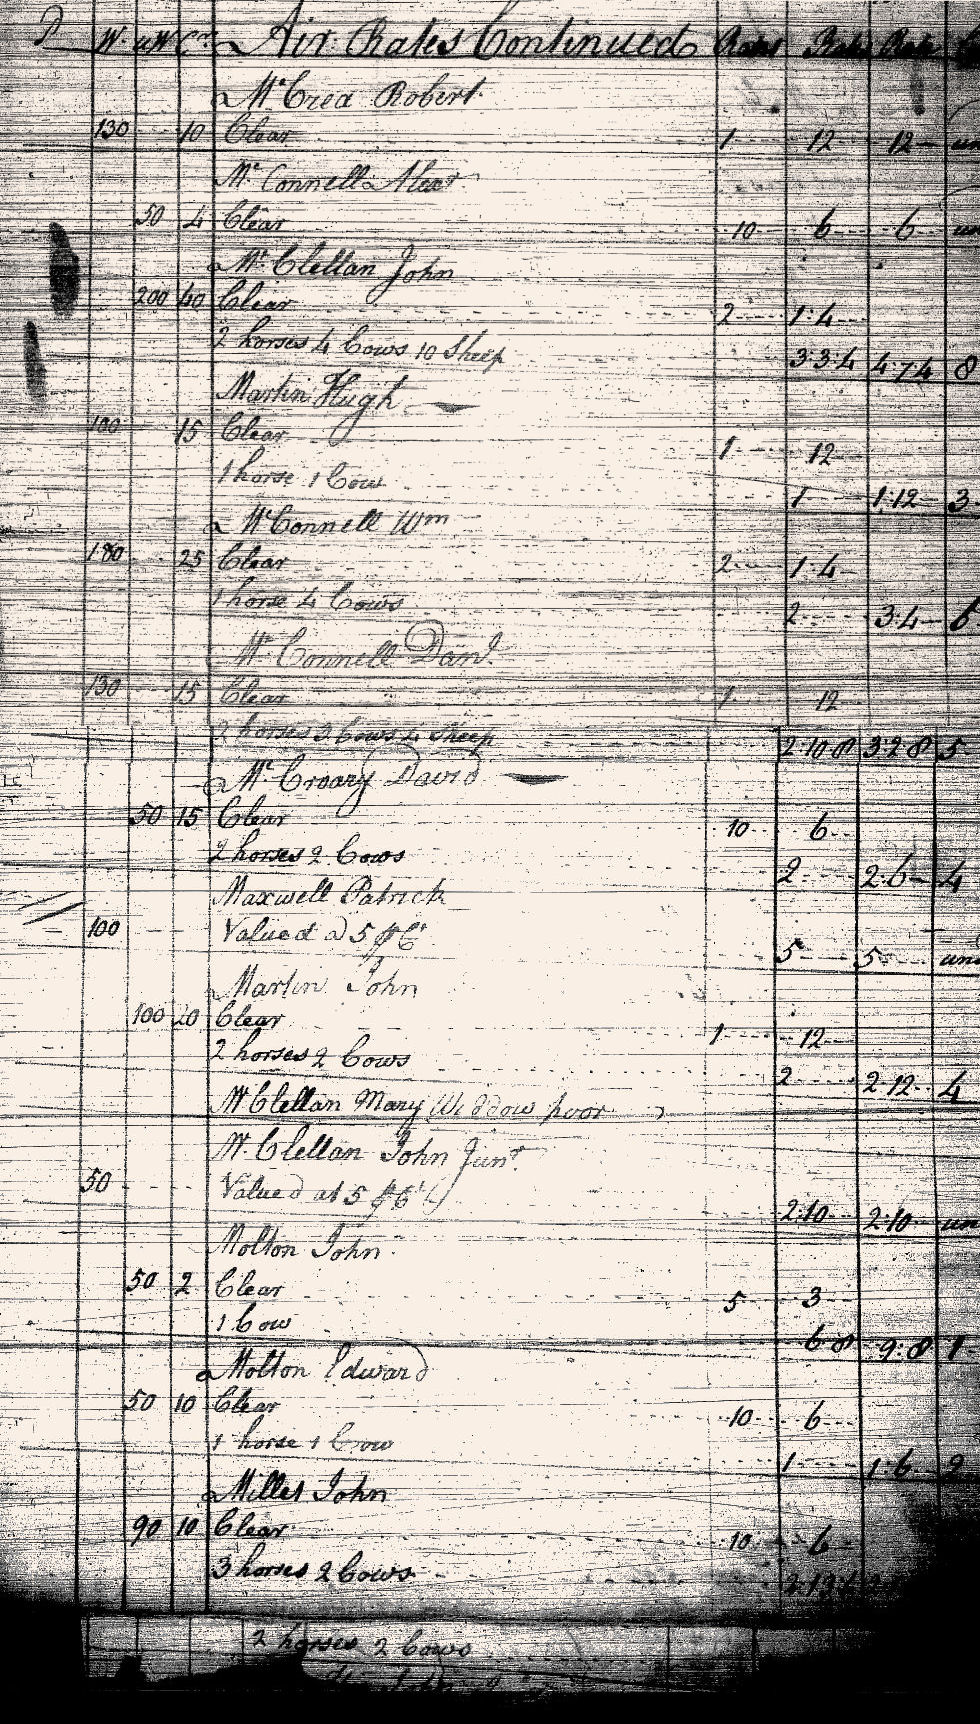 Air Rates Continued Rates Rate Rate
McCrea Robert
130 10 Clear 1 12 12
McConnell Alexr
50 4 Clear 10 6 6
McClellan John
200 40 Clear 2 1:4
2 horses 4 Cows 10 Sheep 3:3:4 4:7:4 8
Martin Hugh
100 15 Clear 1 12
1 horse 1 Cow 1 1:12 3
McConnell Wm
180 25 Clear 2 1:4
1 horse 4 Cows 2 3:4 6
McConnell Danl
130 15 Clear 1 12
2 horses 3 Cows 4 Sheep 2:10:8 3:2:8 5
McCroary David
50 15 Clear 10 6
2 horses 2 Cows 2 2:6 4
Maxwell Patrick
100 Valued a 5 ⅌ Ct 5 5
Martin John
100 20 Clear 1 12
2 horses 2 Cows 2 2:12 4
McClellan Mary Widdow poor
McClellan John Junr
50 Valued at 5 ⅌ Ct 2:10 2:10
Molton John
50 2 Clear 5 3
1 Cow 6:8 9:8 1
Molton Edward
50 10 Clear 10 6
1 horse 1 Cow 1 1:6 2
Miller John
90 10 Clear 10 6
3 horses 2 Cows
2 horses 2 Cows